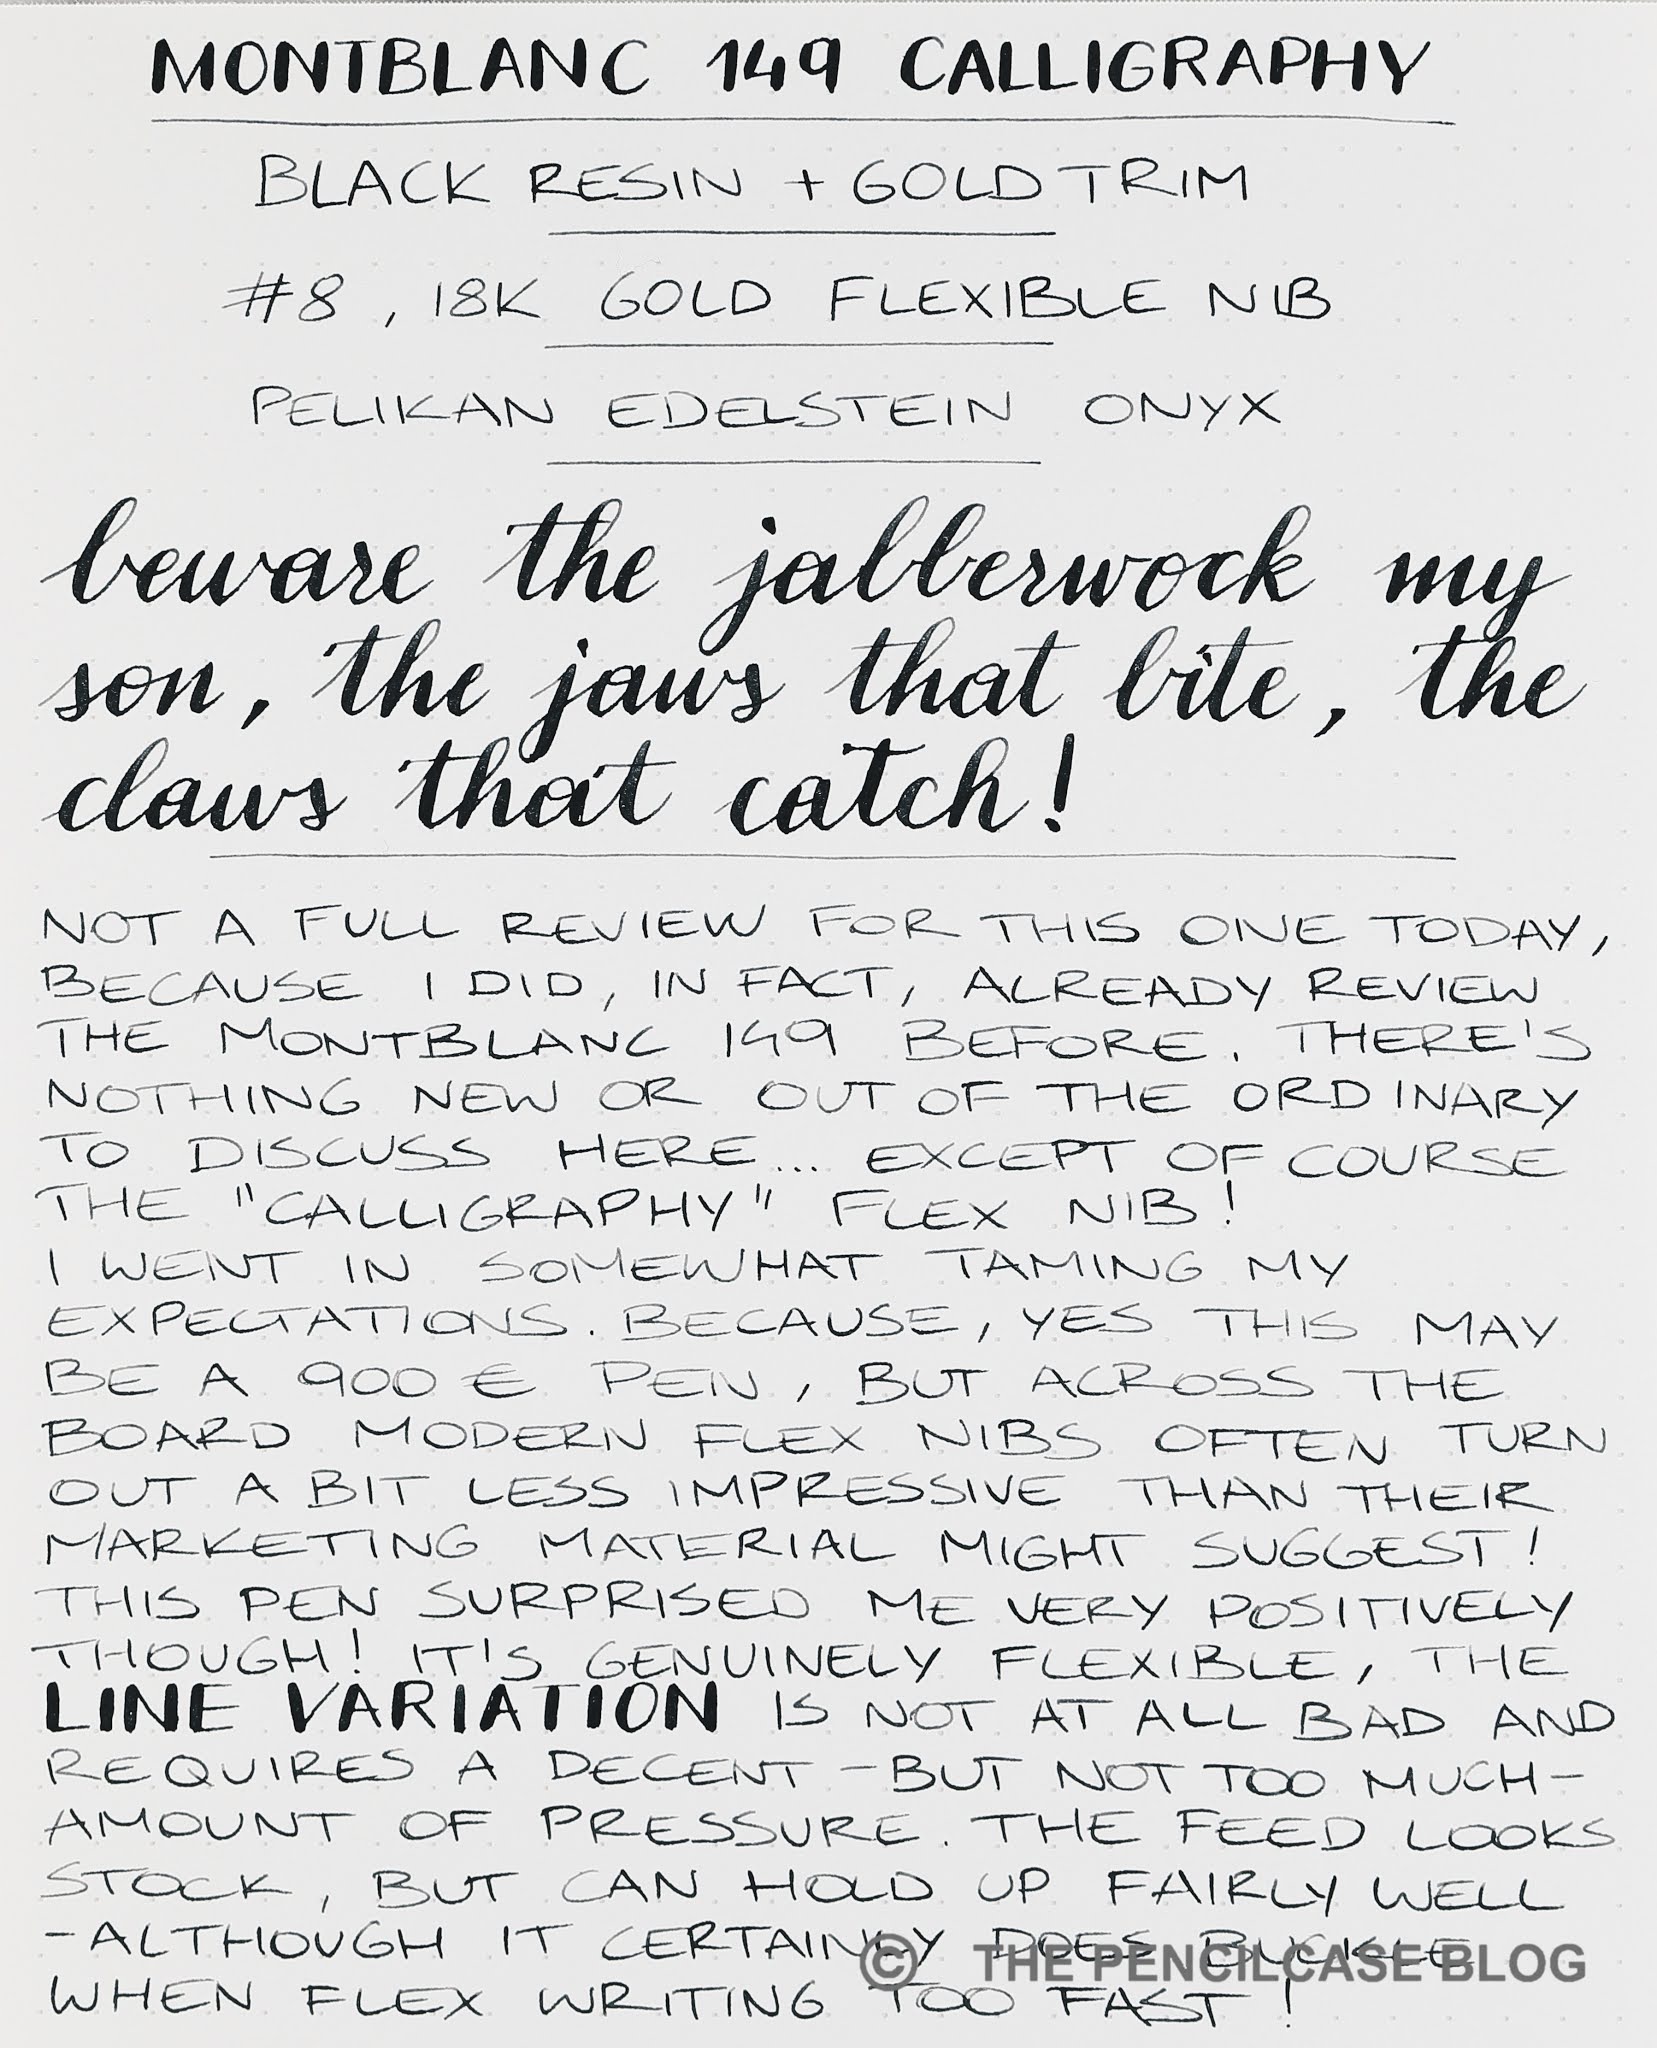 MONTBLANC 149 CALLIGRAPHY
BLACK RESIN + GOLD TRIM
#8, 18K GOLD FLEXIBLE NIB
PELIKAN EDELSTEIN ONYX
beware the jabberwock my
son, the jaws that bite, the
claws that catch!
NOT A FULL REVIEW FOR THIS ONE TODAY,
BECAUSE I DID, IN FACT, ALREADY REVIEW
THE MONTBLANC 149 BEFORE. THERE'S
NOTHING NEW OR OUT OF THE ORDINARY
TO DISCUSS HERE... EXCEPT OF COURSE
THE "CALLIGRAPHY" FLEX NIB!
I WENT IN SOMEWHAT TAMING MY
EXPECTATIONS. BECAUSE, YES THIS MAY
BE A 900 € PEN, BUT ACROSS THE
BOARD MODERN FLEX NIBS OFTEN TURN
OUT A BIT LESS IMPRESSIVE THAN THEIR
MARKETING MATERIAL MIGHT SUGGEST!
THIS PEN SURPRISED ME VERY POSITIVELY
THOUGH! IT'S GENUINELY FLEXIBLE, THE
LINE VARIATION IS NOT AT ALL BAD AND
REQUIRES A DECENT - BUT NOT TOO MUCH -
AMOUNT OF PRESSURE. THE FEED LOOKS
STOCK, BUT CAN HOLD UP FAIRLY WELL
- ALTHOUGH IT CERTAINLY DOES BUCKLE
© THE PENCILCASE BLOG
WHEN FLEX WRITING TOO FAST!